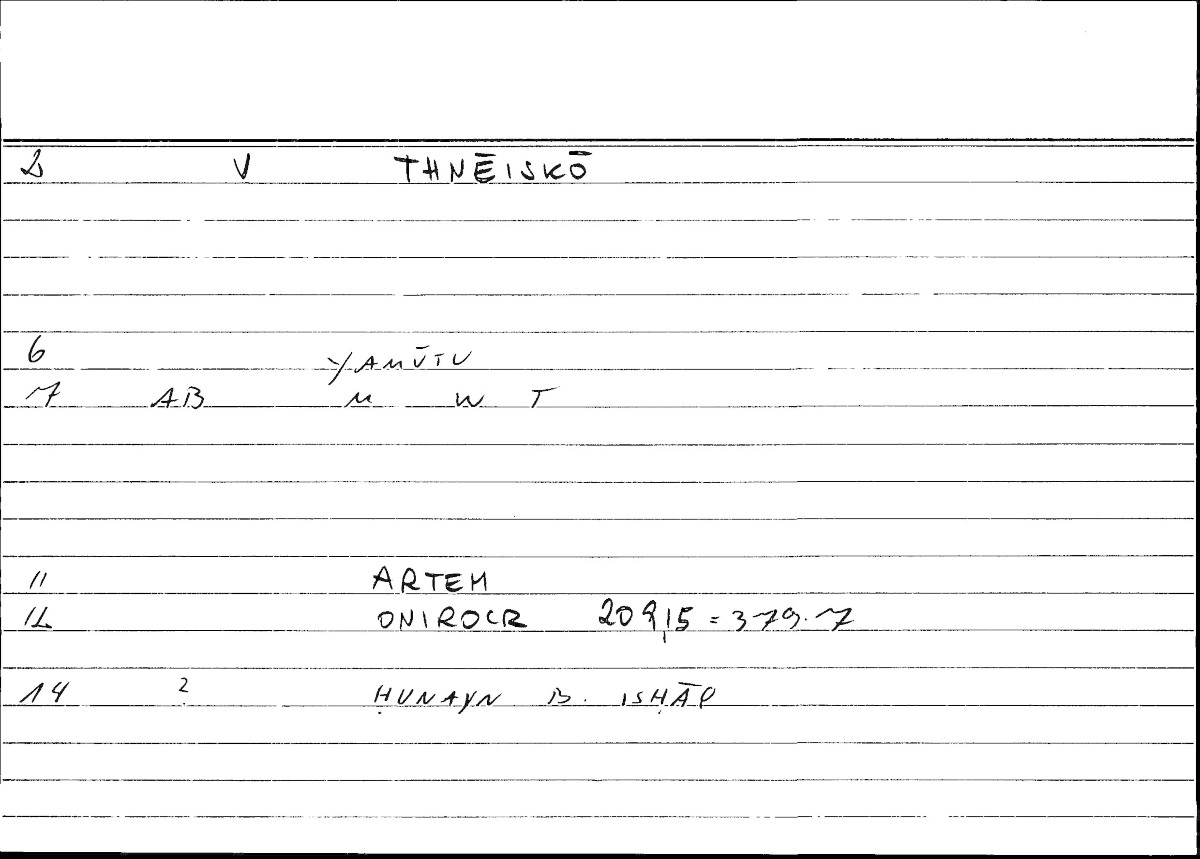 2 V THNĒISKŌ
6 YAMŪTU
7 AB M W T
11 ARTEM
12 ONIROCR 209,15 = 379.7
14 2 ḤUNAYN B. ISḤĀQ